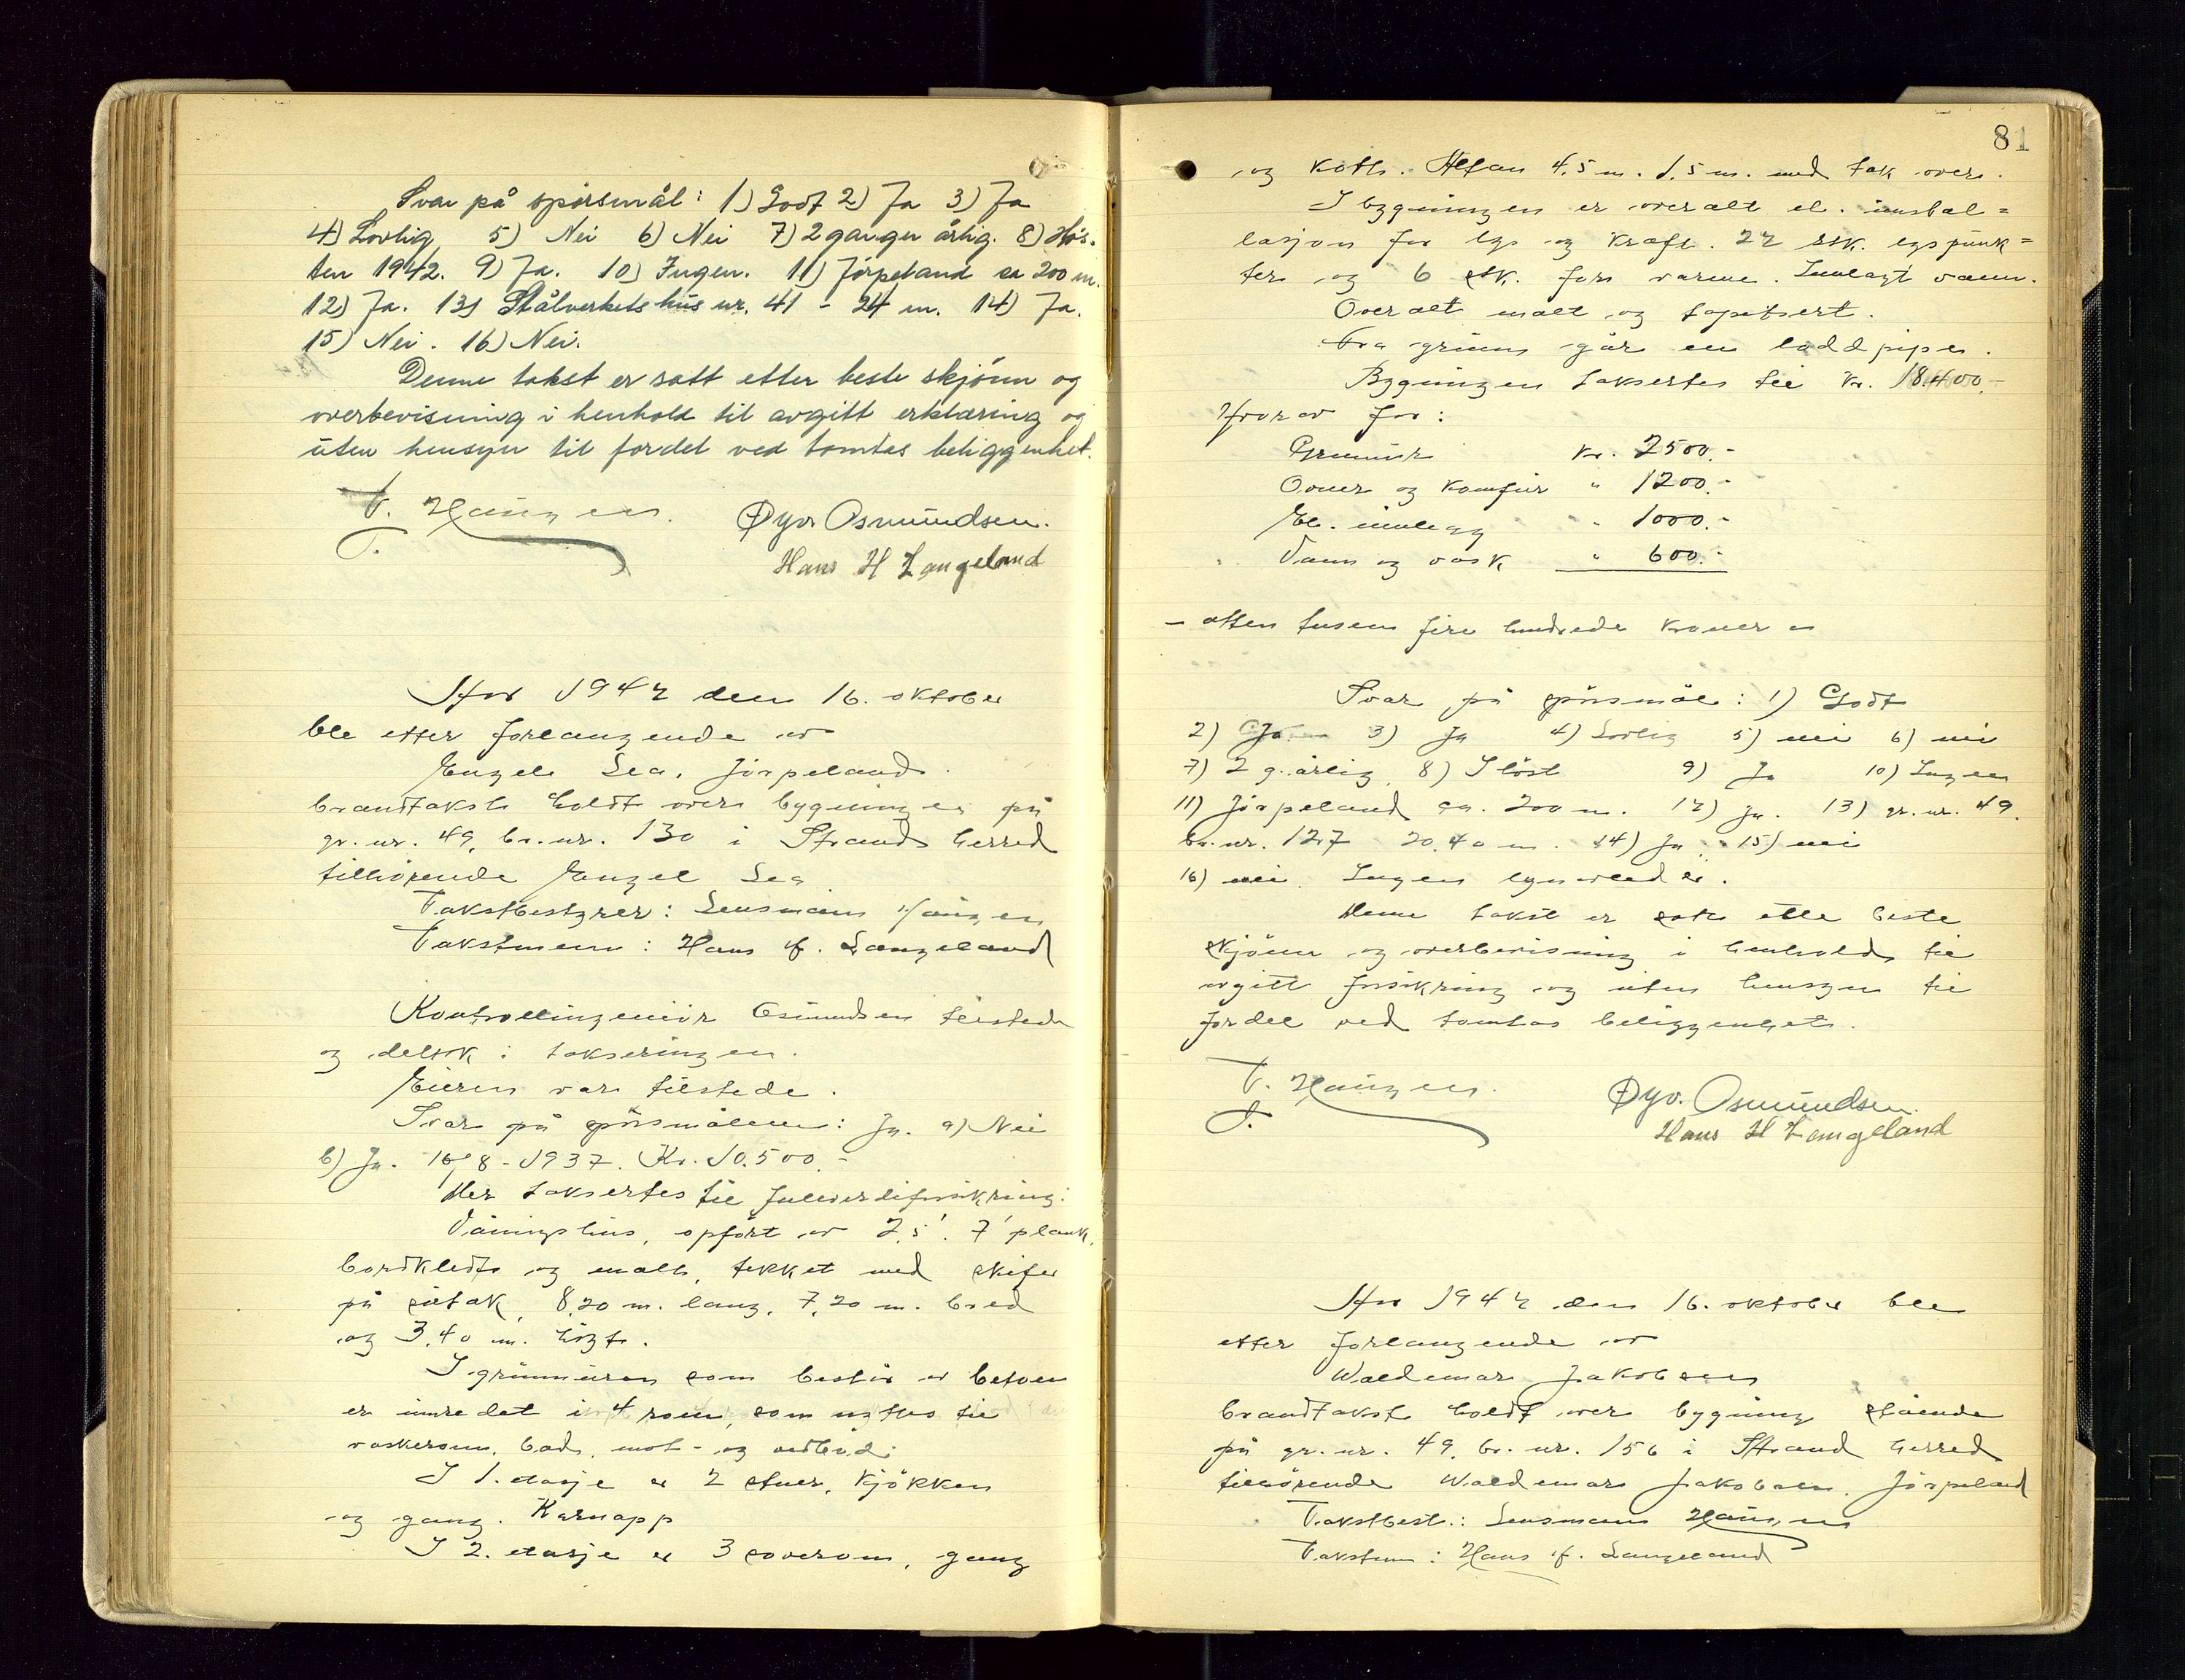 Svar på spörsmål: 1) Godt 2) Ja 3) Ja
4) Lovlig 5) Nei 6) Nei 7) 2 ganger årlig. 8) Hös-
ten 1942. 9) Ja. 10) Ingen. 11) Jörpeland ca 200 m.
12) Ja. 13) Stålverkets hus nr. 41 - 24 m. 14) Ja.
15) Nei. 16) Nei.
Denne takst er satt etter beste skjönn og
overbevisning i henhold til avgitt erklæring og
uten hensyn til fordel ved tomtas beliggenhet.
T. Haugen. Øyv. Osmundsen.
Hans H Langeland
År 1942 den 16. oktober
ble etter forlangende av
Engel Lea, Jörpeland.
brandtakst holdt over bygningen på
gr. nr. 49, br. nr. 130 i Strand herred
tilhörende Engel Lea
Takstbestyrer: Lensmann Haugen
Takstmenn: Hans H. Langeland
Kontrollingeniör Osmundsen tilstede
og deltok i takseringen.
Eieren var tilstede.
Svar på spörsmålene: Ja. a) Nei
b) Ja. 16/8-1937. Kr. 10.500.-
Her taksertes til fullverdiforsikring:
Våningshus, opfört av 2,5". 7" plank,
bordkledt og malt, tekket med skifer
på sutak, 8,20 m. lang, 7,20 m. bred
og 3,40 m. høgt.
I grunnmuren som består av betong
er innredet i 4 rom, som nyttes til
vaskerom, bad, mat- og vedbod.
I 1. etasje er 2 stuer, kjökken
og gang. Karnapp
I 2. etasje er 3 soverom, gang
81
og kott. Altan 4,5 m. 1,5 m. med tak over.
I bygningen er overalt el. instal=
lasjon for lys og kraft. 22 stk. lyspunk=
ter og 6 stk. for varme. Innlagt vann.
Overalt malt og tapetsert.
Fra grunn går en löddpipe.
Bygningen taksertes til kr. 18.400.-
Hvorav for:
Grunnmur kr. 2500.-
Ovner og komfur " 1200.-
El. innlegg " 1000.-
Vann og vask " 600.-
- atten tusen fire hundrede kroner -
Svar på spörsmål: 1) Godt
2) Ja 3) Ja 4) Lovlig 5) nei 6) nei
7) 2 g. årlig 8) I höst 9) Ja 10) Ingen
11) Jörpeland ca. 200 m. 12) Ja. 13) gr. nr. 49,
br. nr. 127 20,40 m. 14) Ja. 15) nei
16) nei. Ingen lynavleder.
Denne takst er satt etter beste
skjönn og overbevisning i henhold til
avgitt forsikring og uten hensyn til
fordel ved tomtas beliggenhet.
T. Haugen. Øyv. Osmundsen.
Hans H Langeland
År 1942 den 16. oktober ble
etter forlangende av
Waldemar Jakobsen
brandtakst holdt over bygning stående
på gr. nr. 49, br. nr. 156 i Strand herred
tilhörende Waldemar Jakobsen, Jörpeland
Takstbest.: Lensmann Haugen
Takstmn: Hans H. Langeland